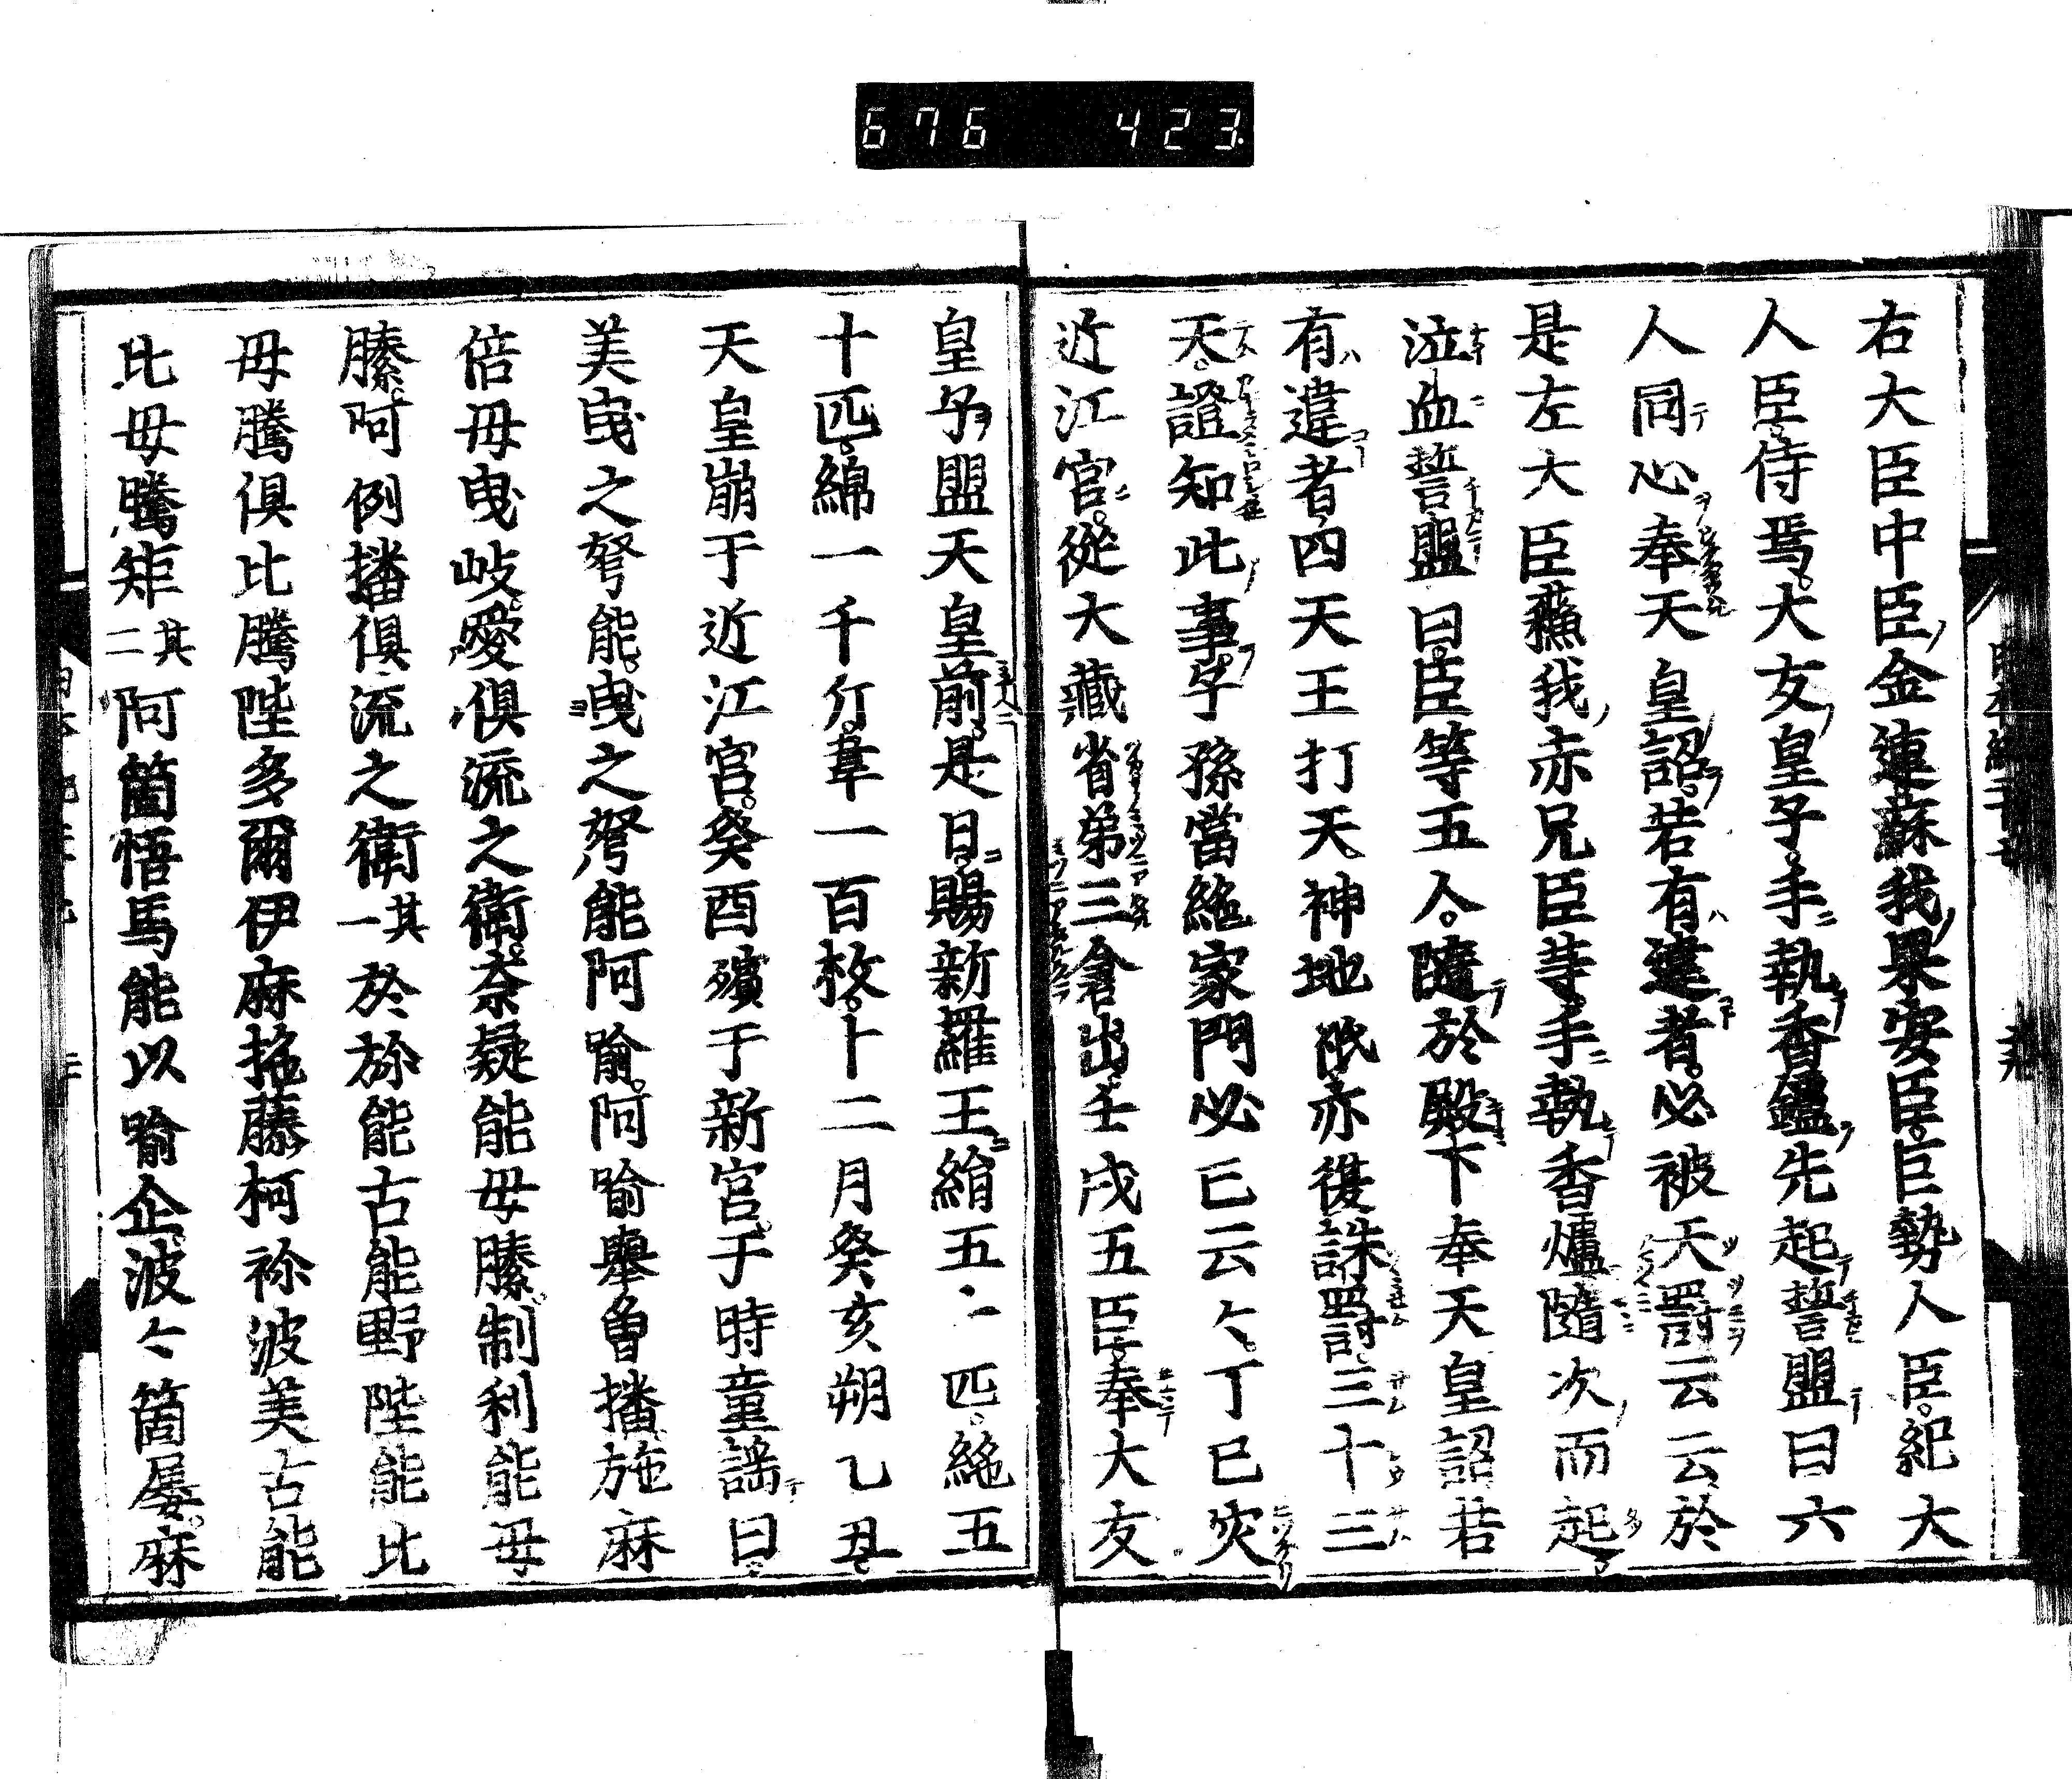 676 423
右大臣中臣金連蘇我果安臣巨勢人臣紀大
人臣侍焉大友皇子手執香鑪先起誓盟曰六
人同心奉天皇詔若有違者必被天罸云云於
是左大臣蘓我赤兄臣等手執香爐隨次而起
泣血誓盟曰臣等五人隨於殿下奉天皇詔若
有違者四天王打天神地祇亦復誅罸三十三
天證知此事子孫當絶家門必亡云々丁巳灾
近江宮從大藏省弟三倉出壬戌五臣奉大友
皇子盟天皇前是日賜新羅王絹五十匹絁五
十匹綿一千斤韋一百枚十二月癸亥朔乙丑
天皇崩于近江宮癸酉殯于新宮于時童謡曰
美曳之弩能曳之弩能阿喻阿喻擧曽播施麻
倍母曳岐愛倶流之衛奈疑能母騰制利能母
騰阿例播倶流之衛其一於弥能古能野陛能比
母騰倶比騰陛多爾伊麻拕藤柯祢波美古能
比母騰矩其二阿箇悟馬能以喻企波々箇屡麻